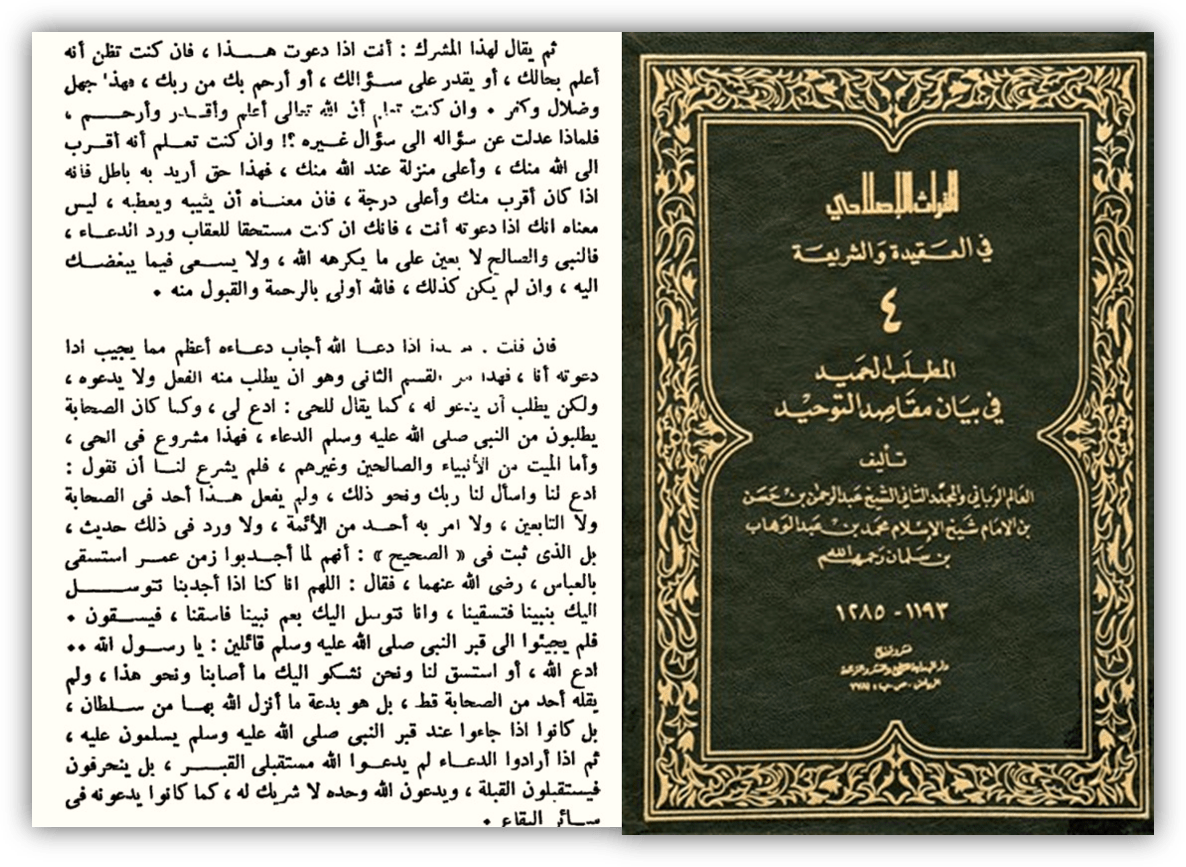 ثم يقال لهذا المشرك : أنت اذا دعوت هـــذا ، فان كنت تظن أنه
أعلم بحالك ، أو يقدر على سـؤالك ، أو أرحم بك من ربك ، فهذا جهل
وضلال وكفر • وان كنت تعلم أن الله تعالى أعلم وأقـدر وأرحــم ،
فلماذا عدلت عن سؤاله الى سؤال غيره ؟! وان كنت تعـلم أنه أقـرب
الى الله منك ، وأعلى منزلة عند الله منك ، فهذا حق أريد به باطل فانه
اذا كان أقرب منك وأعلى درجة ، فان معنـاه أن يثيبه ويعطيه ، ليس
معناه انك اذا دعوته أنت ، فانك ان كنت مستحقا للعقاب ورد الدعـاء ،
فالنبى والصالح لا يعين على ما يكرهه الله ، ولا يسـعى فيما يبغضـك
اليه ، وان لم يكن كذلك ، فالله أولى بالرحمة والقبول منه •
فان قلت اذا دعـا الله أجاب دعـاءه أعظم مما يجيب اذا
دعوته أنا ، فهذا القسم الثانى وهو ان يطلب منه الفعل ولا يدعوه ،
ولكن يطلب أن يدعو له ، كما يقال للحى : ادع لى ، وكما كان الصحابة
يطلبون من النبى صلى الله عليه وسلم الدعاء ، فهذا مشروع فى الحى ،
وأما الميت من الأنبياء والصالحين وغيرهم ، فلم يشرع لنـا أن نقول :
ادع لنا واسأل لنا ربك ونحو ذلك ، ولم يفعل هـذا أحد فى الصحابة
ولا التابعين ، ولا امر به أحـد من الأئمة ، ولا ورد فى ذلك حديث ،
بل الذى ثبت فى « الصحيح » : أنهم لما أجـدبوا زمن عمـر استسقى
بالعباس ، رضى الله عنهما ، فقال : اللهم انا كنا اذا أجدبنا نتوســـل
اليك بنبينا فتسقينا ، وانا نتوسل اليك بعم نبينا فاسقنا ، فيسـقون •
فلم يجيئوا الى قبر النبى صلى الله عليه وسلم قائلين : يا رسـول الله ••
ادع الله ، أو استسق لنا ونحن نشكو اليك ما أصابنا ونحو هذا ، ولم
يقله أحد من الصحابة قط ، بل هو بدعة ما أنزل الله بهـا من سـلطان ،
بل كانوا اذا جاءوا عند قبر النبى صلى الله عليه وسلم يسلمون عليه ،
ثم اذا أرادوا الدعـاء لم يدعـوا الله مستقبلى القبـر ، بل ينحرفون
فيستقبلون القبلة ، ويدعون الله وحده لا شريك له ، كما كانوا يدعونه فى
سـائر البقاع •
التراث الإسلامي
في العقيدة والشريعة
٤
المطلب الحميد
في بيان مقاصد التوحيد
تأليف
العالم الرباني والمجدد الثاني الشيخ عبد الرحمن بن حسن
بن الإمام شيخ الإسلام محمد بن عبد الوهاب
بن سلمان رحمهم الله
١١٩٣ - ١٢٨٥